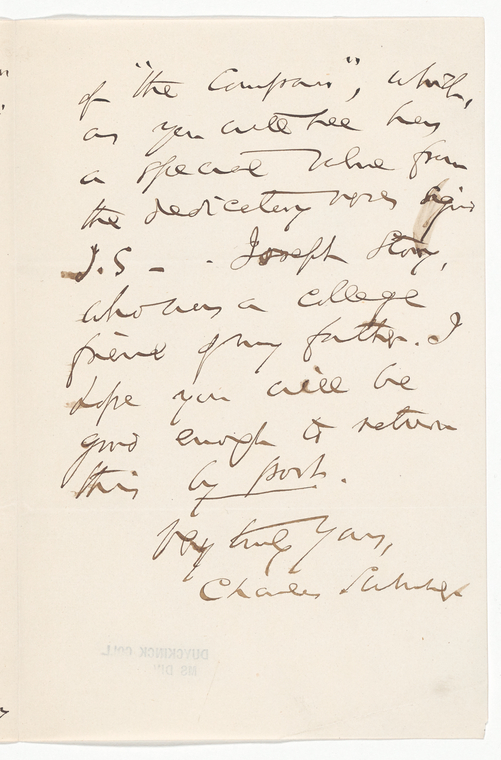 of "the Compass", which,
as you will see has
a special value from
the dedicatory verses signed
J.S - - Joseph Story,
who was a college
friend of my father. I
hope you will be
good enough to return
this by post.
Very truly Yours,
Charles Sumner
DUYCKINCK COLL.
MS DIV